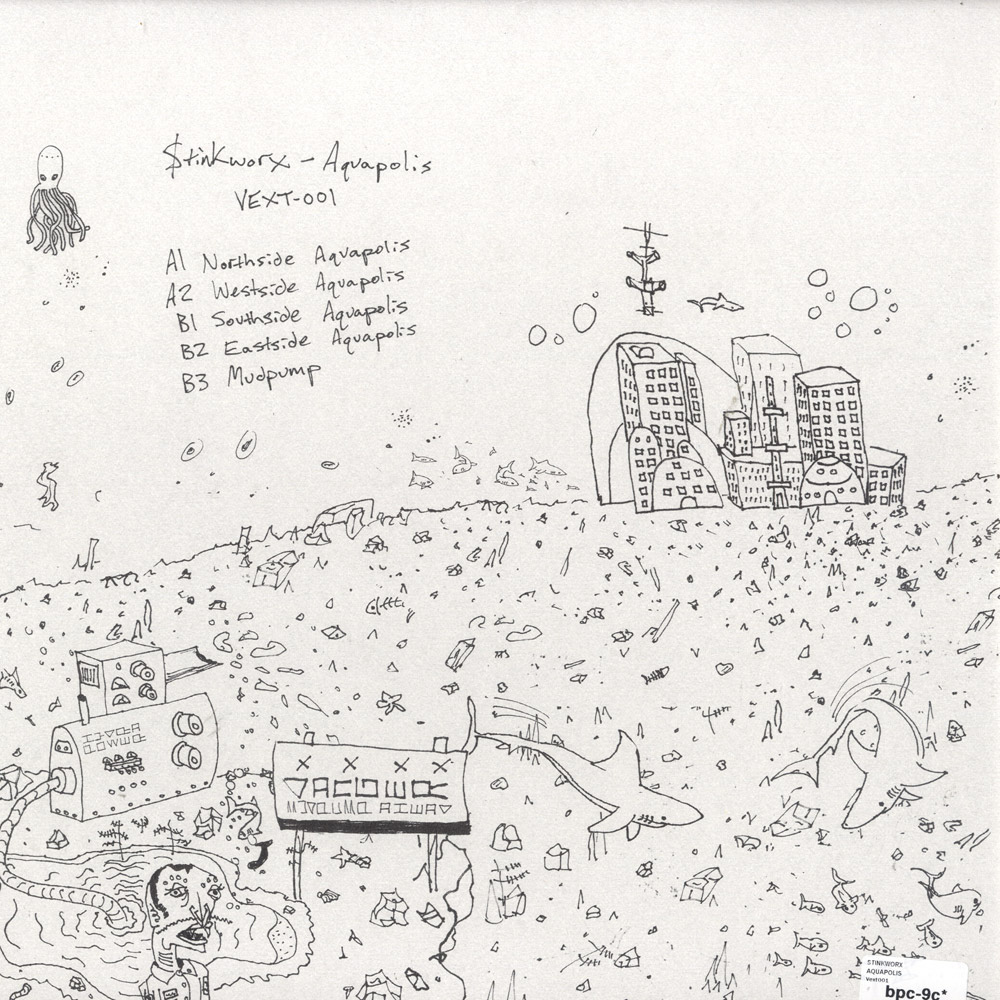 $tinkworx - Aquapolis
VEXT-001
A1 Northside Aquapolis
A2 Westside Aquapolis
B1 Southside Aquapolis
B2 Eastside Aquapolis
B3 Mudpump
STINKWORX
AQUAPOLIS
vext001
bpc-9c*